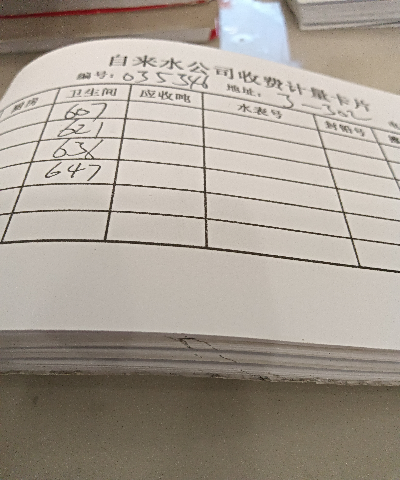 自来水公司收费计量卡片
编号: 035346 地址: 3-302
厨房 卫生间 应收吨 水表号 封铅号
607
621
636
647